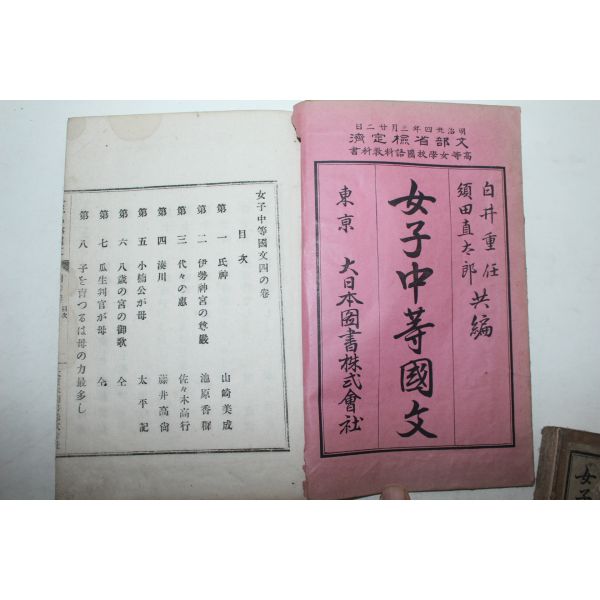 日二廿月三年四卅治明
濟定檢省部文
書科敎科語國校學女等高
白井重任
須田直太郎
共編
女子中等國文
東京 大日本圖書株式會社
女子中等國文四の卷
目次
第一 氏神 山崎美成
第二 伊勢神宮の尊嚴 池原香穉
第三 代々の惠 佐々木高行
第四 湊川 藤井高尙
第五 小楠公が母 太平記
第六 八歲の宮の御歌 仝
第七 瓜生判官が母 仝
第八 子を育つるは母の力最多し
目次
女子